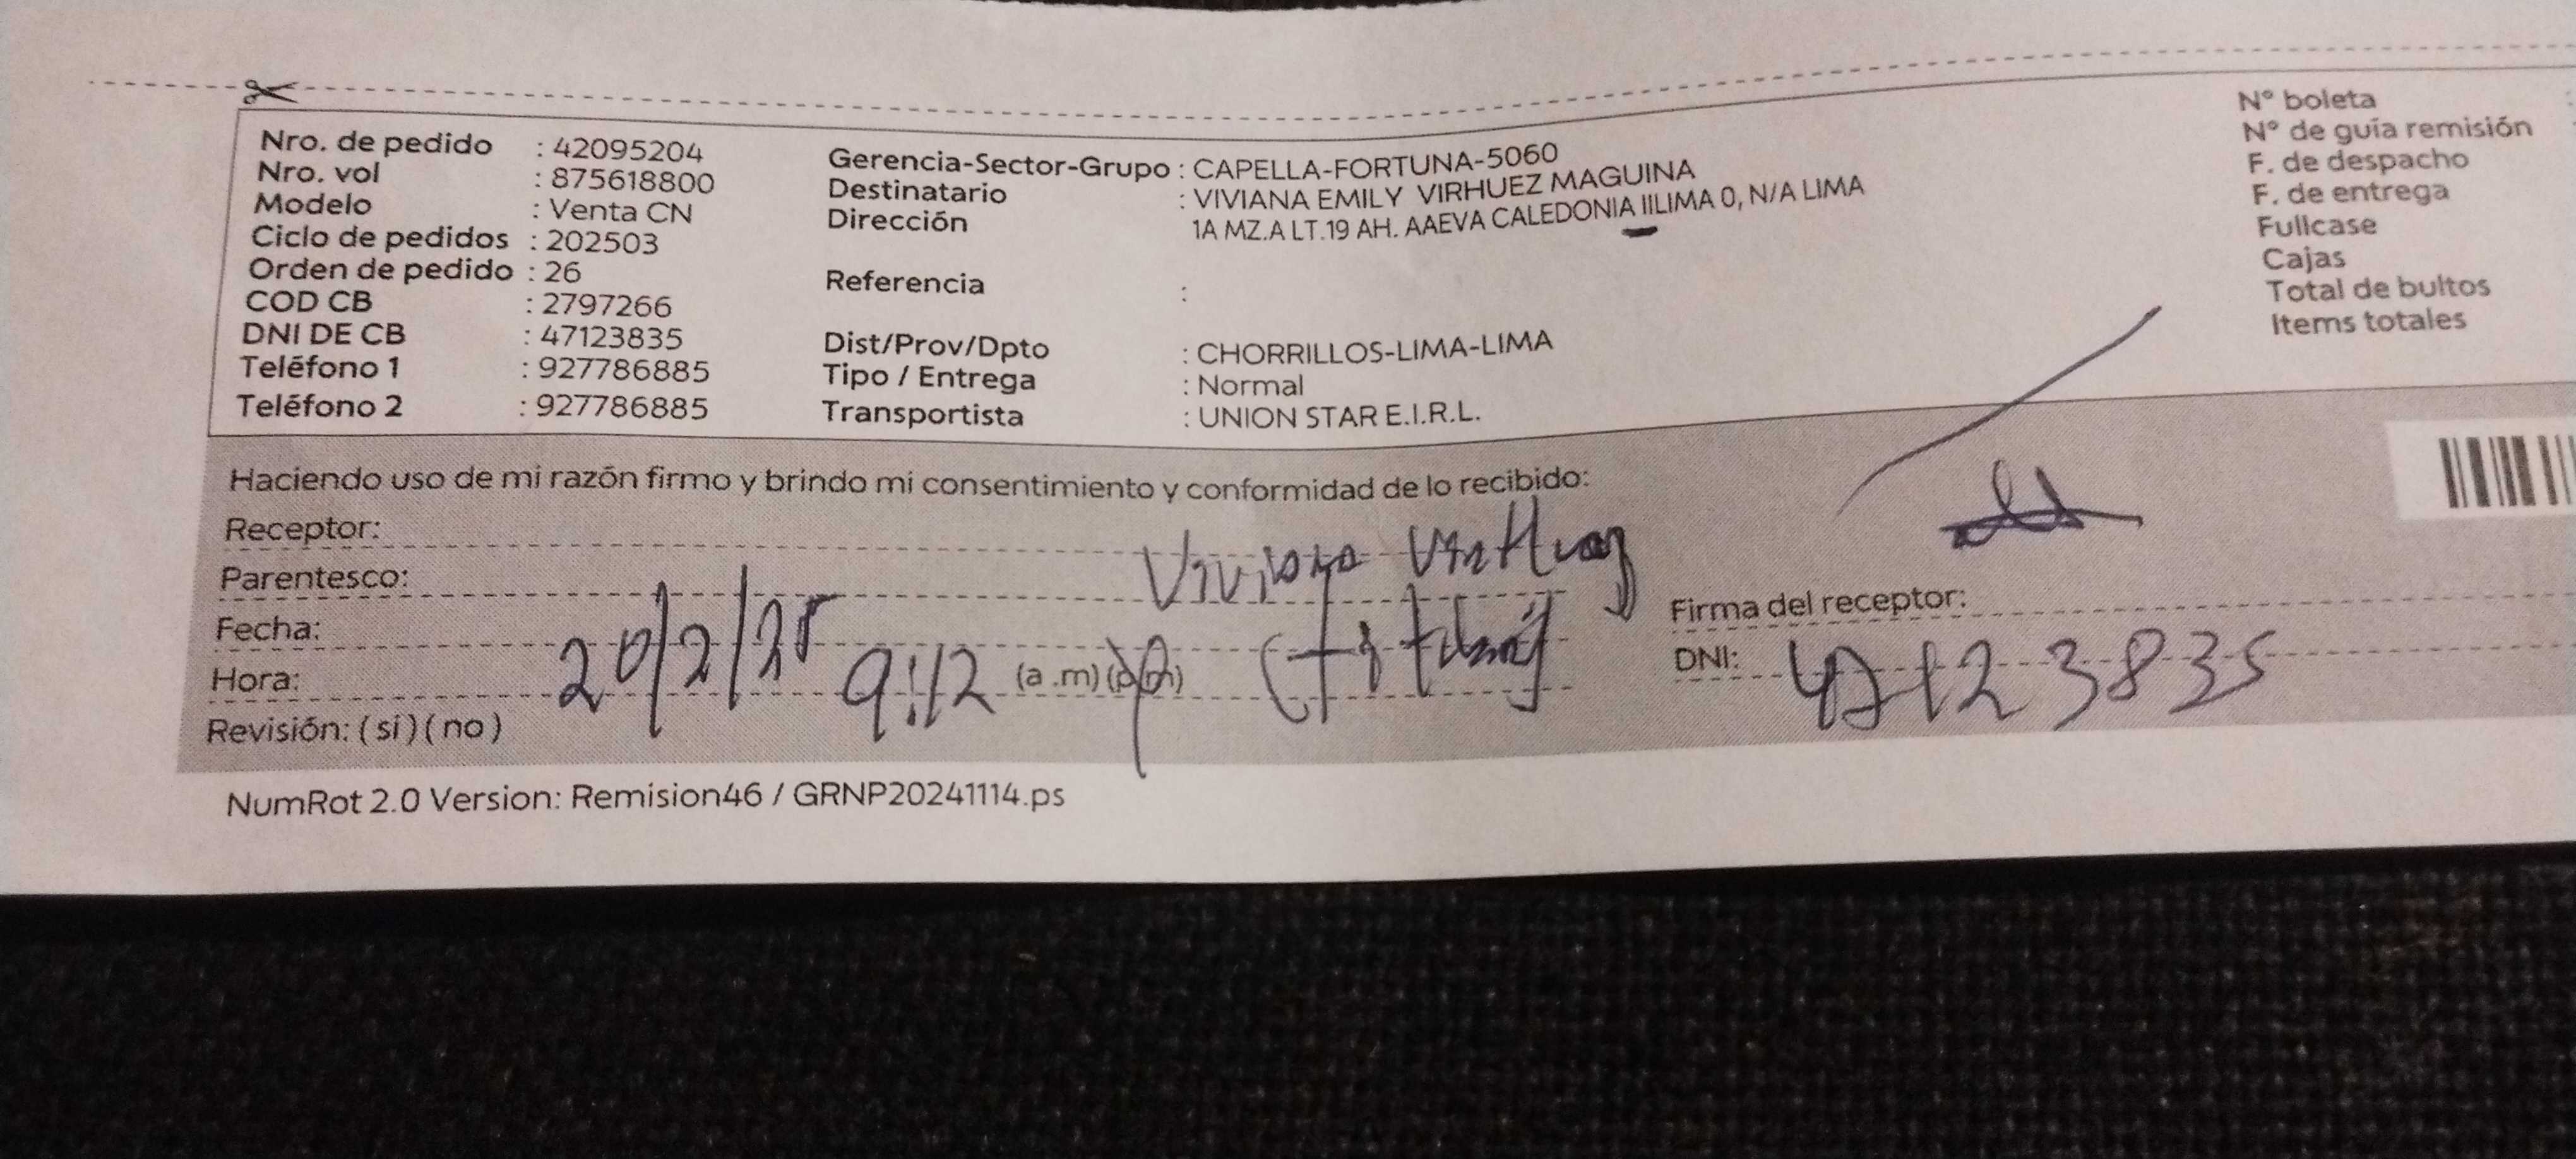 Nro. de pedido : 42095204
Nro. vol : 875618800
Modelo : Venta CN
Ciclo de pedidos : 202503
Orden de pedido : 26
COD CB : 2797266
DNI DE CB : 47123835
Teléfono 1 : 927786885
Teléfono 2 : 927786885
Gerencia-Sector-Grupo : CAPELLA-FORTUNA-5060
Destinatario : VIVIANA EMILY VIRHUEZ MAGUINA
Dirección : 1A MZ.A LT.19 AH. AAEVA CALEDONIA IILIMA 0, N/A LIMA
Referencia :
Dist/Prov/Dpto : CHORRILLOS-LIMA-LIMA
Tipo / Entrega : Normal
Transportista : UNION STAR E.I.R.L.
N° boleta
N° de guía remisión
F. de despacho
F. de entrega
Fullcase
Cajas
Total de bultos
Items totales
Haciendo uso de mi razón firmo y brindo mi consentimiento y conformidad de lo recibido:
Receptor: Viviana Virhuez
Parentesco:
Fecha: 20/2/25
Hora: 9:12 (a .m) (p.m)
Revisión: (si) (no)
Firma del receptor:
DNI: 47123835
NumRot 2.0 Version: Remision46 / GRNP20241114.ps